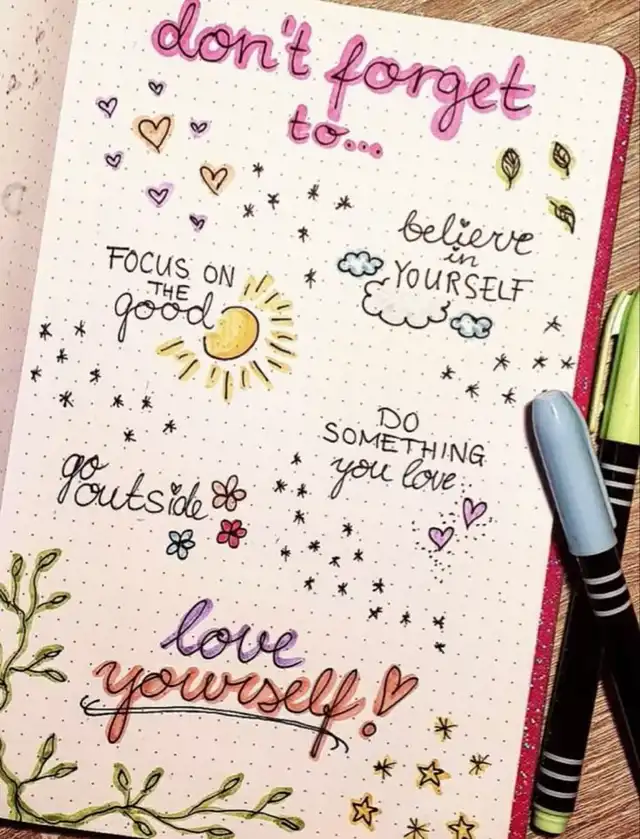 don't forget
to...
believe
in
YOURSELF
FOCUS ON
THE
good
DO
SOMETHING
you love
go
outside
love
yourself!